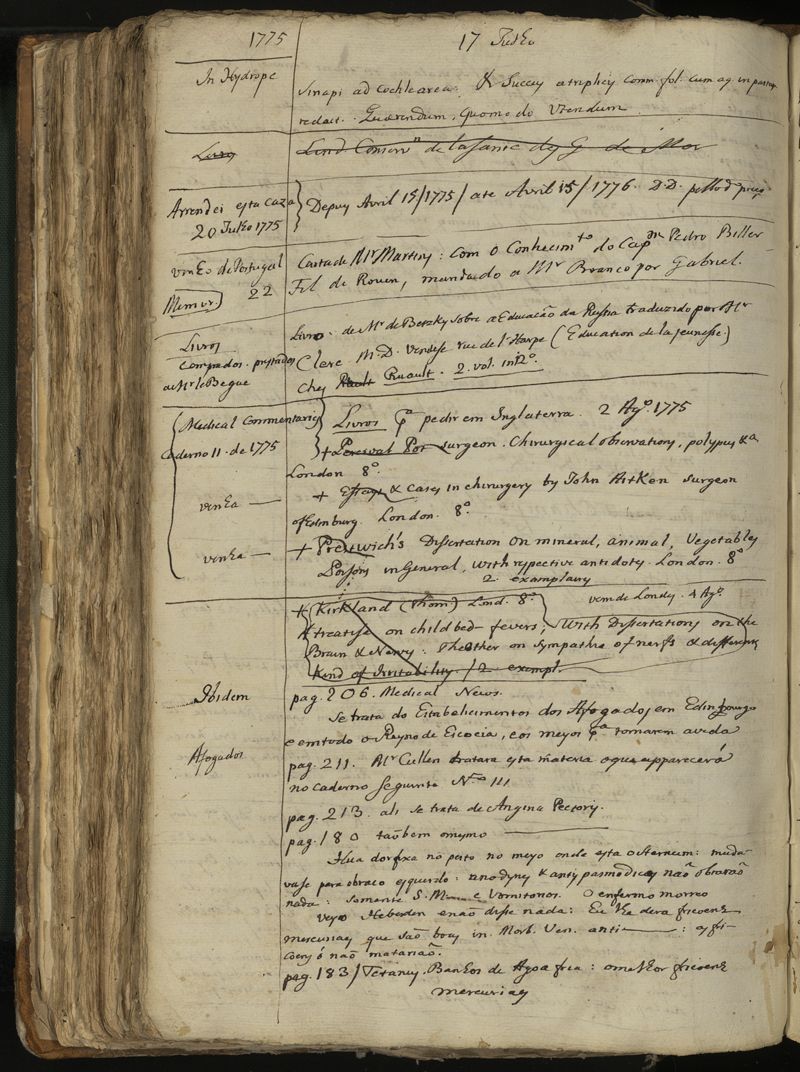 1775
17 Julho
In Hydrope
Sinapi ad Cochlearea: & Succus atriplicis comm. fol. cum aq. in
redact. Quaerendum, quomodo Utendum
Livro
Lind Conserv.n de la Santé des G de Mer
Arrendei esta Caza
20 Julho 1775
Depuis Avril 15/1775/ ate Avril 15/1776. D.D.
vinho de Portugal
Memor) 22
Carta de Mr Martins: com o Conhecim.to do Cap.m Pedro Biller
Fil de Rouen, mandado a Mr Branco por Gabriel.
Livros
Comprados. prestados
a Mr le Begue
Livro. de Mr. de Betzky sobre a Educacão da Russia traduzido por Mr
Clerc M.D. vendese rue de l'Harpe (Education de la jeunesse.)
Ches Ruault. 2. vol. in 12º.
Medical Commentaries
Caderno 11. de 1775
Livros q pedir em Inglaterra. 2 Agº. 1775
+ Percival Pot surgeon. Chirurgical observations, polypus &a
London 8º.
venha —
+ Essays & Cases in chirurgery by John Aitken surgeon
of Edinburg. London. 8º.
venha —
+ Prestwich's Dissertation on mineral, animal, Vegetables
Poisons in General, with respective antidots. London. 8º
2. exemplaires
+ (Kirkland (Thom) Lond. 8º
vem de Londres. 4 Agº.
A treatise on childbed fevers; With Dissertations on the
Brain & Nervs: The other on Sympathie of nerfs & differents
Kind of Irritability. / 2 exempl.
Ibidem
pag. 206. Medical News.
Afogados
Se trata do Estabelicimentos dos Afogados em Edinbourgo
e em todo o Reyno de Escocia, e os meyos q.a tornarem a vida
pag. 211. Mr Cullen tratara esta materia o que apparecerá
no caderno seguinte Nº 111
pag. 213. ali se trata de Angina Pectoris.
pag. 180 taõbem o mesmo
Hua dor fixa no peito no meyo onde esta o Sternum: muda-
vase para o braco esquerdo: anodynes & antispasmodicos naõ obraraõ
nada: somente S. M. e Vomitorios. O enfermo morreo
veyo Heberden e naõ disse nada: Eu lhe dera fricoens
mercuriaes que saõ boas in Morb. Ven. anti— : as fri-
coens o naõ matariaõ.
pag. 183/ Tetanus. Banhos de Agoa fria: o melhor fricoens
mercuriaes